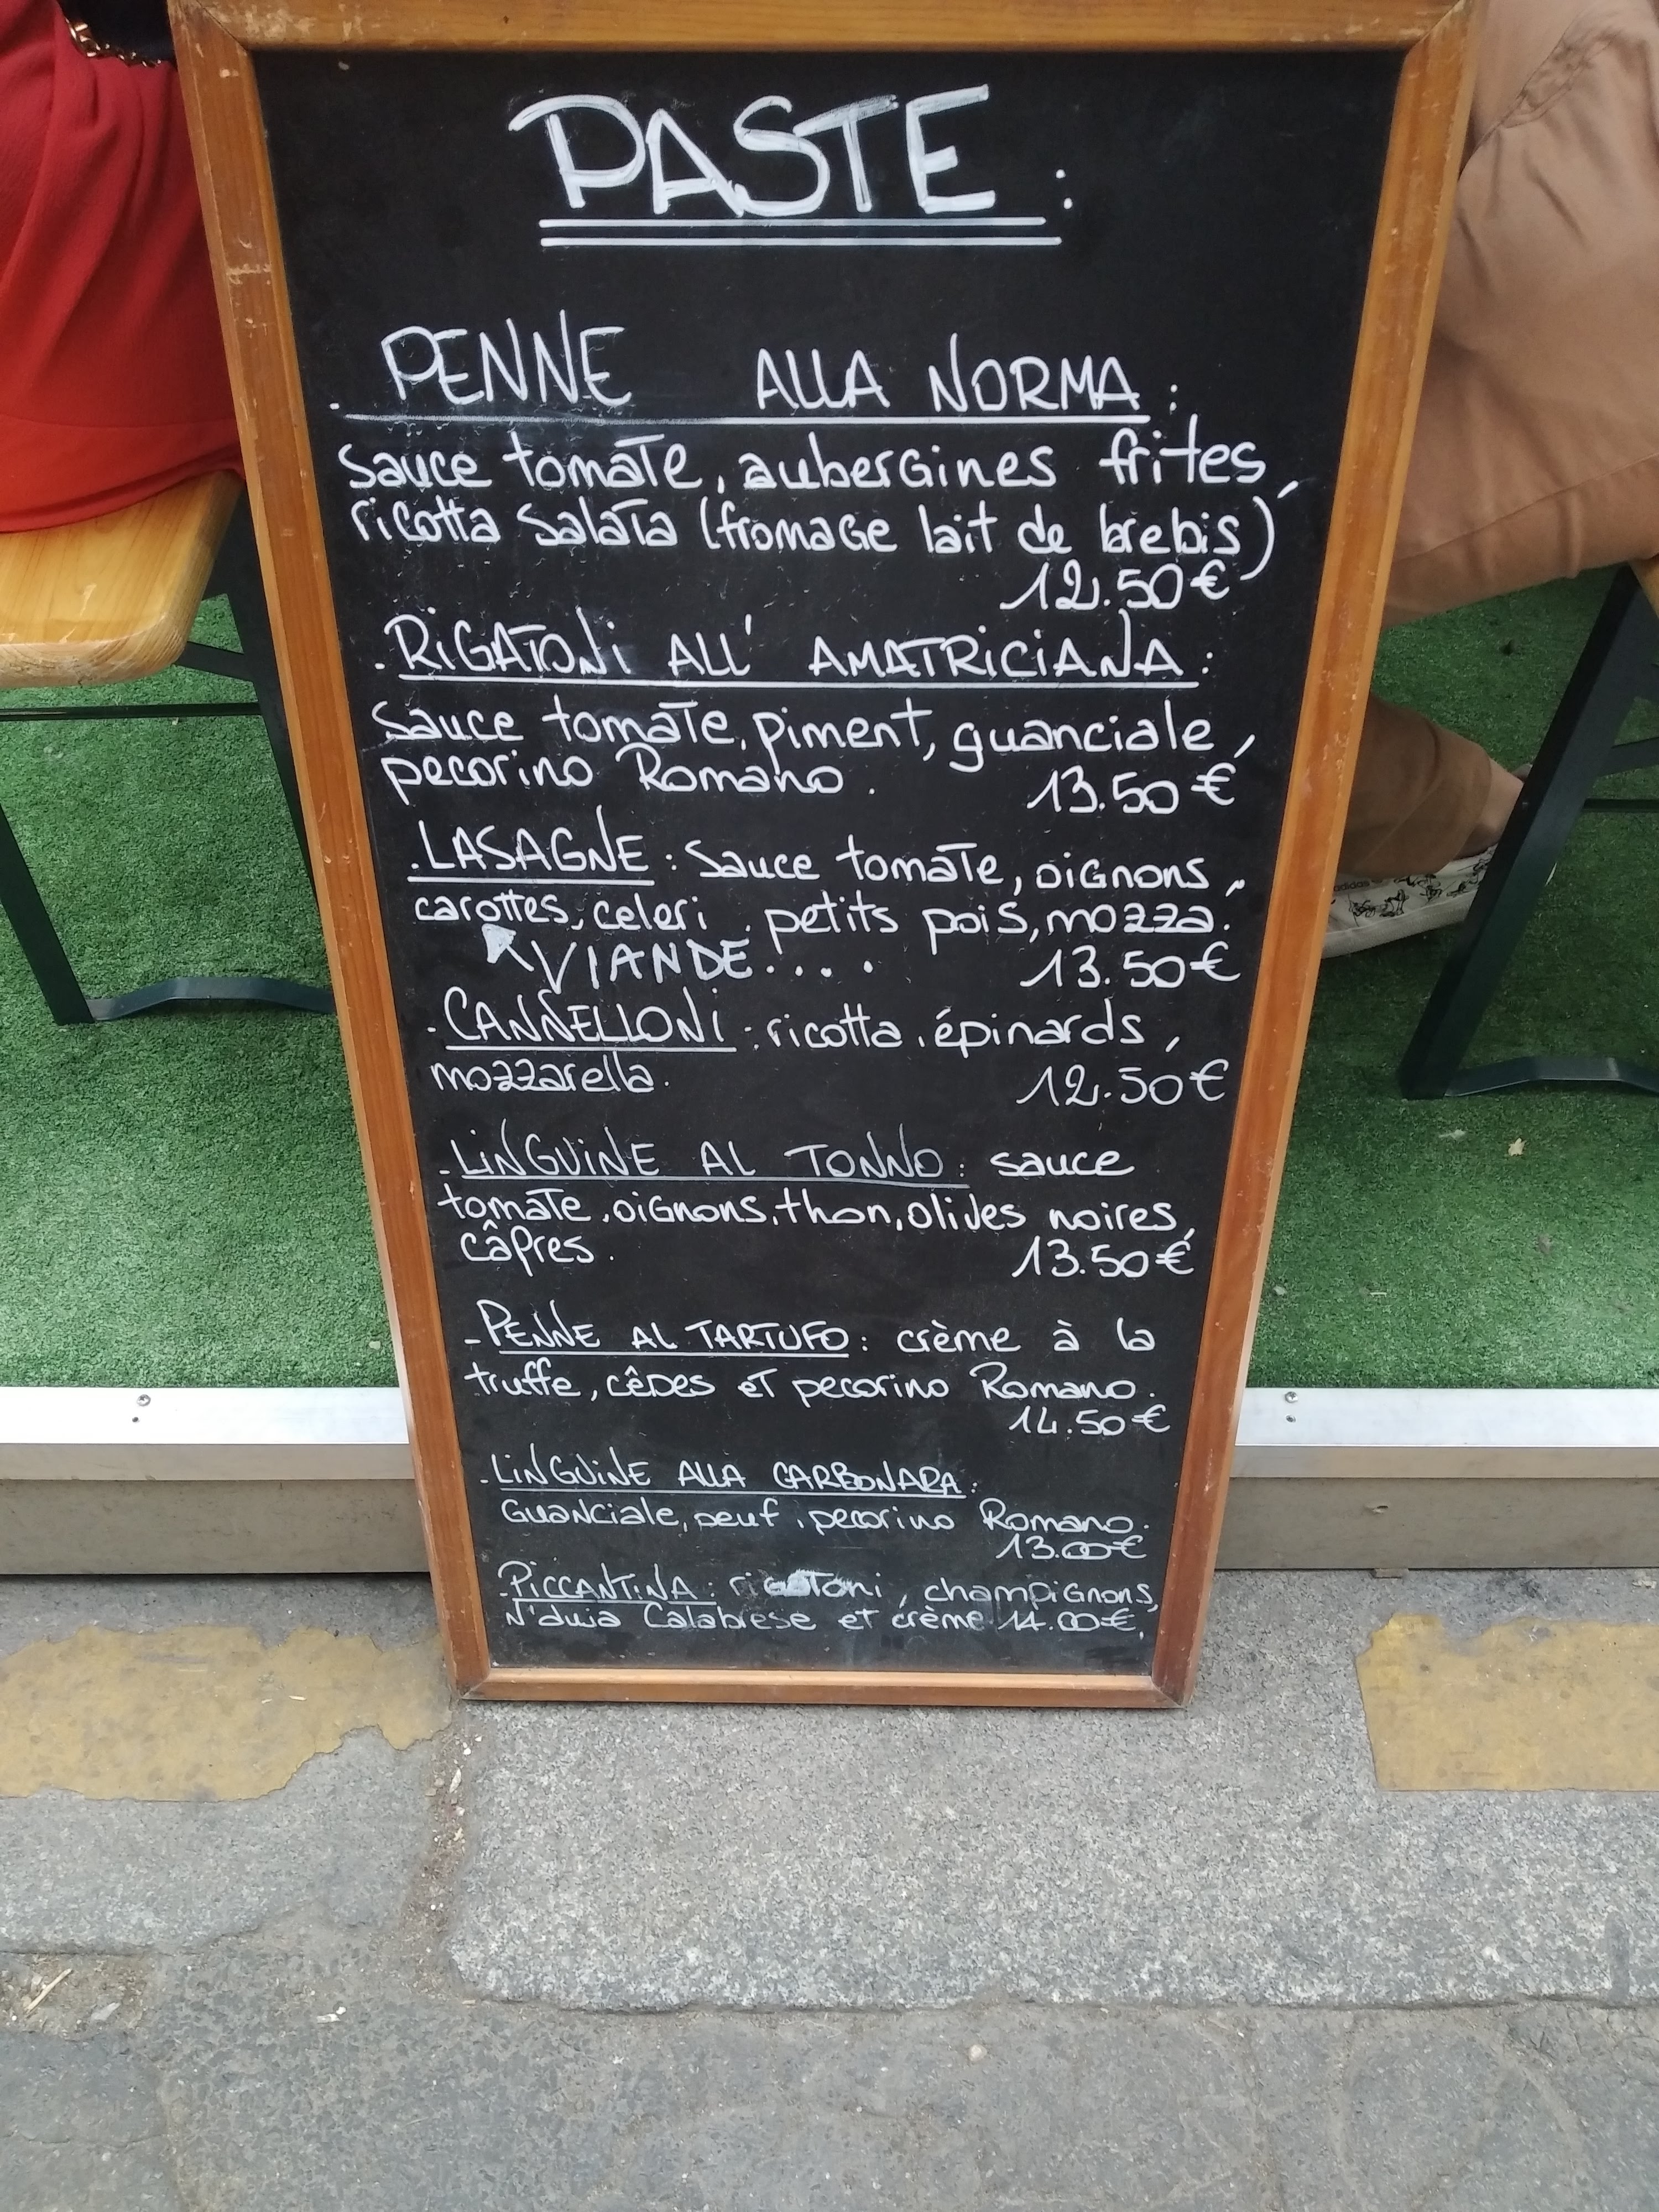 PASTE :
. PENNE ALLA NORMA :
Sauce tomate, aubergines frites,
ricotta salata (fromage lait de brebis)
12.50€
. RIGATONI ALL' AMATRICIANA :
Sauce tomate, piment, guanciale,
pecorino Romano. 13.50€
. LASAGNE : Sauce tomate, oignons,
carottes, celeri, petits pois, mozza.
VIANDE.... 13.50€
. CANNELLONI : ricotta, épinards,
mozzarella. 12.50€
- LINGUINE AL TONNO : sauce
tomate, oignons, thon, olives noires,
câpres. 13.50€
- PENNE AL TARTUFO : crème à la
truffe, cêpes et pecorino Romano.
14.50€
. LINGUINE ALLA CARBONARA :
Guanciale, oeuf, pecorino Romano.
13.00€
. PICCANTINA : rigatoni, champignons,
N'duja Calabrese et crème 14.00€.
adidas